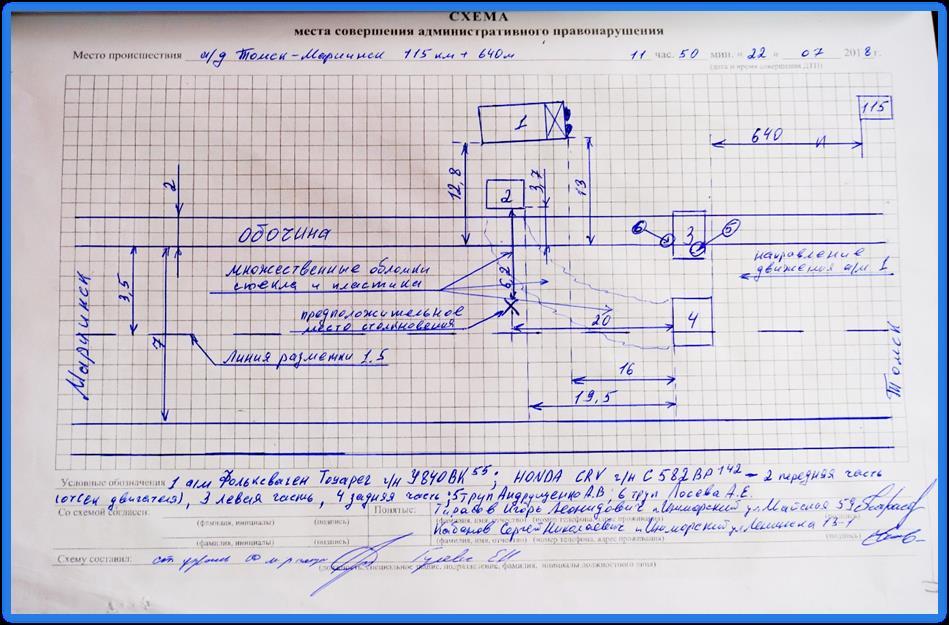 СХЕМА
места совершения административного правонарушения
Место происшествия а/д Томск-Мариинск 115 км + 640 м 11 час. 50 мин. « 22 » 07 2018 г.
(дата и время совершения ДТП)
115
1
640 м
12,8
3,7
13
2
2
обочина
6
3
5
направление
движения а/м 1
множественные обломки
стекла и пластика
3,5
6,2
предположительное
место столкновения
20
4
Мариинск
7
Линия разметки 1.5
Томск
16
19,5
Условные обозначения 1 а/м Фольксваген Товарег г/н У840ВК 55; HONDA CRV г/н С582ВР 142 - 2 передняя часть
(отсек двигателя), 3 левая часть, 4 задняя часть; 5 труп Андрущенко А.В; 6 труп Лосева А.Е.
Со схемой согласен: Понятые: Тарасов Игорь Леонидович ул. Майская 59
(фамилия, инициалы) (подпись) (фамилия, имя, отчество) (номер телефона, адрес проживания)
Сергей Николаевич
(фамилия, инициалы) (подпись) (фамилия, имя, отчество) (номер телефона, адрес проживания) (подпись)
Схему составил:
(должность, специальное звание, подразделение, фамилия, инициалы должностного лица)